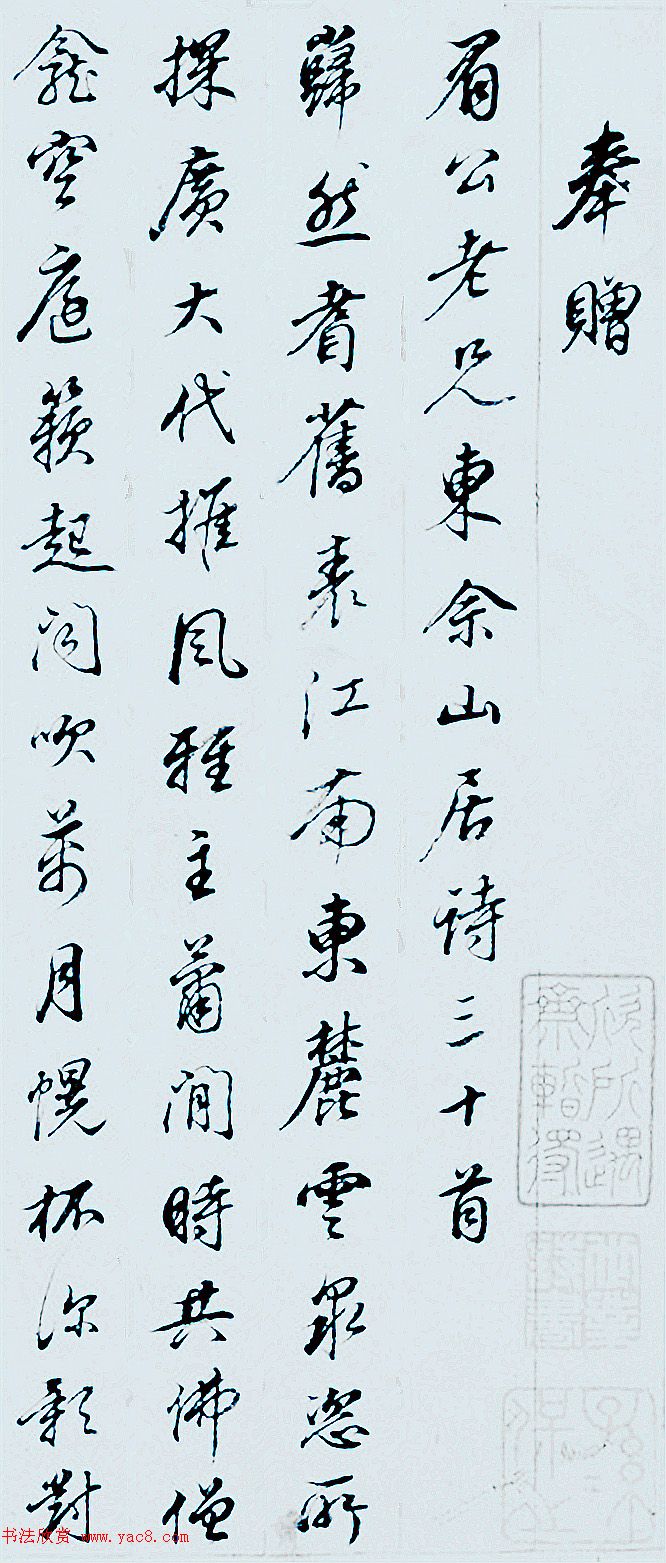 奉贈
眉公老兄東佘山居詩三十首
巋然耆舊表江南東麓雲泉恣所
探廣大代推風雅主蕭閒時共佛僧
龕空庭籟起閒吹萬月幌杯深影對
於所遇
暫得
书法欣赏 www.yac8.com